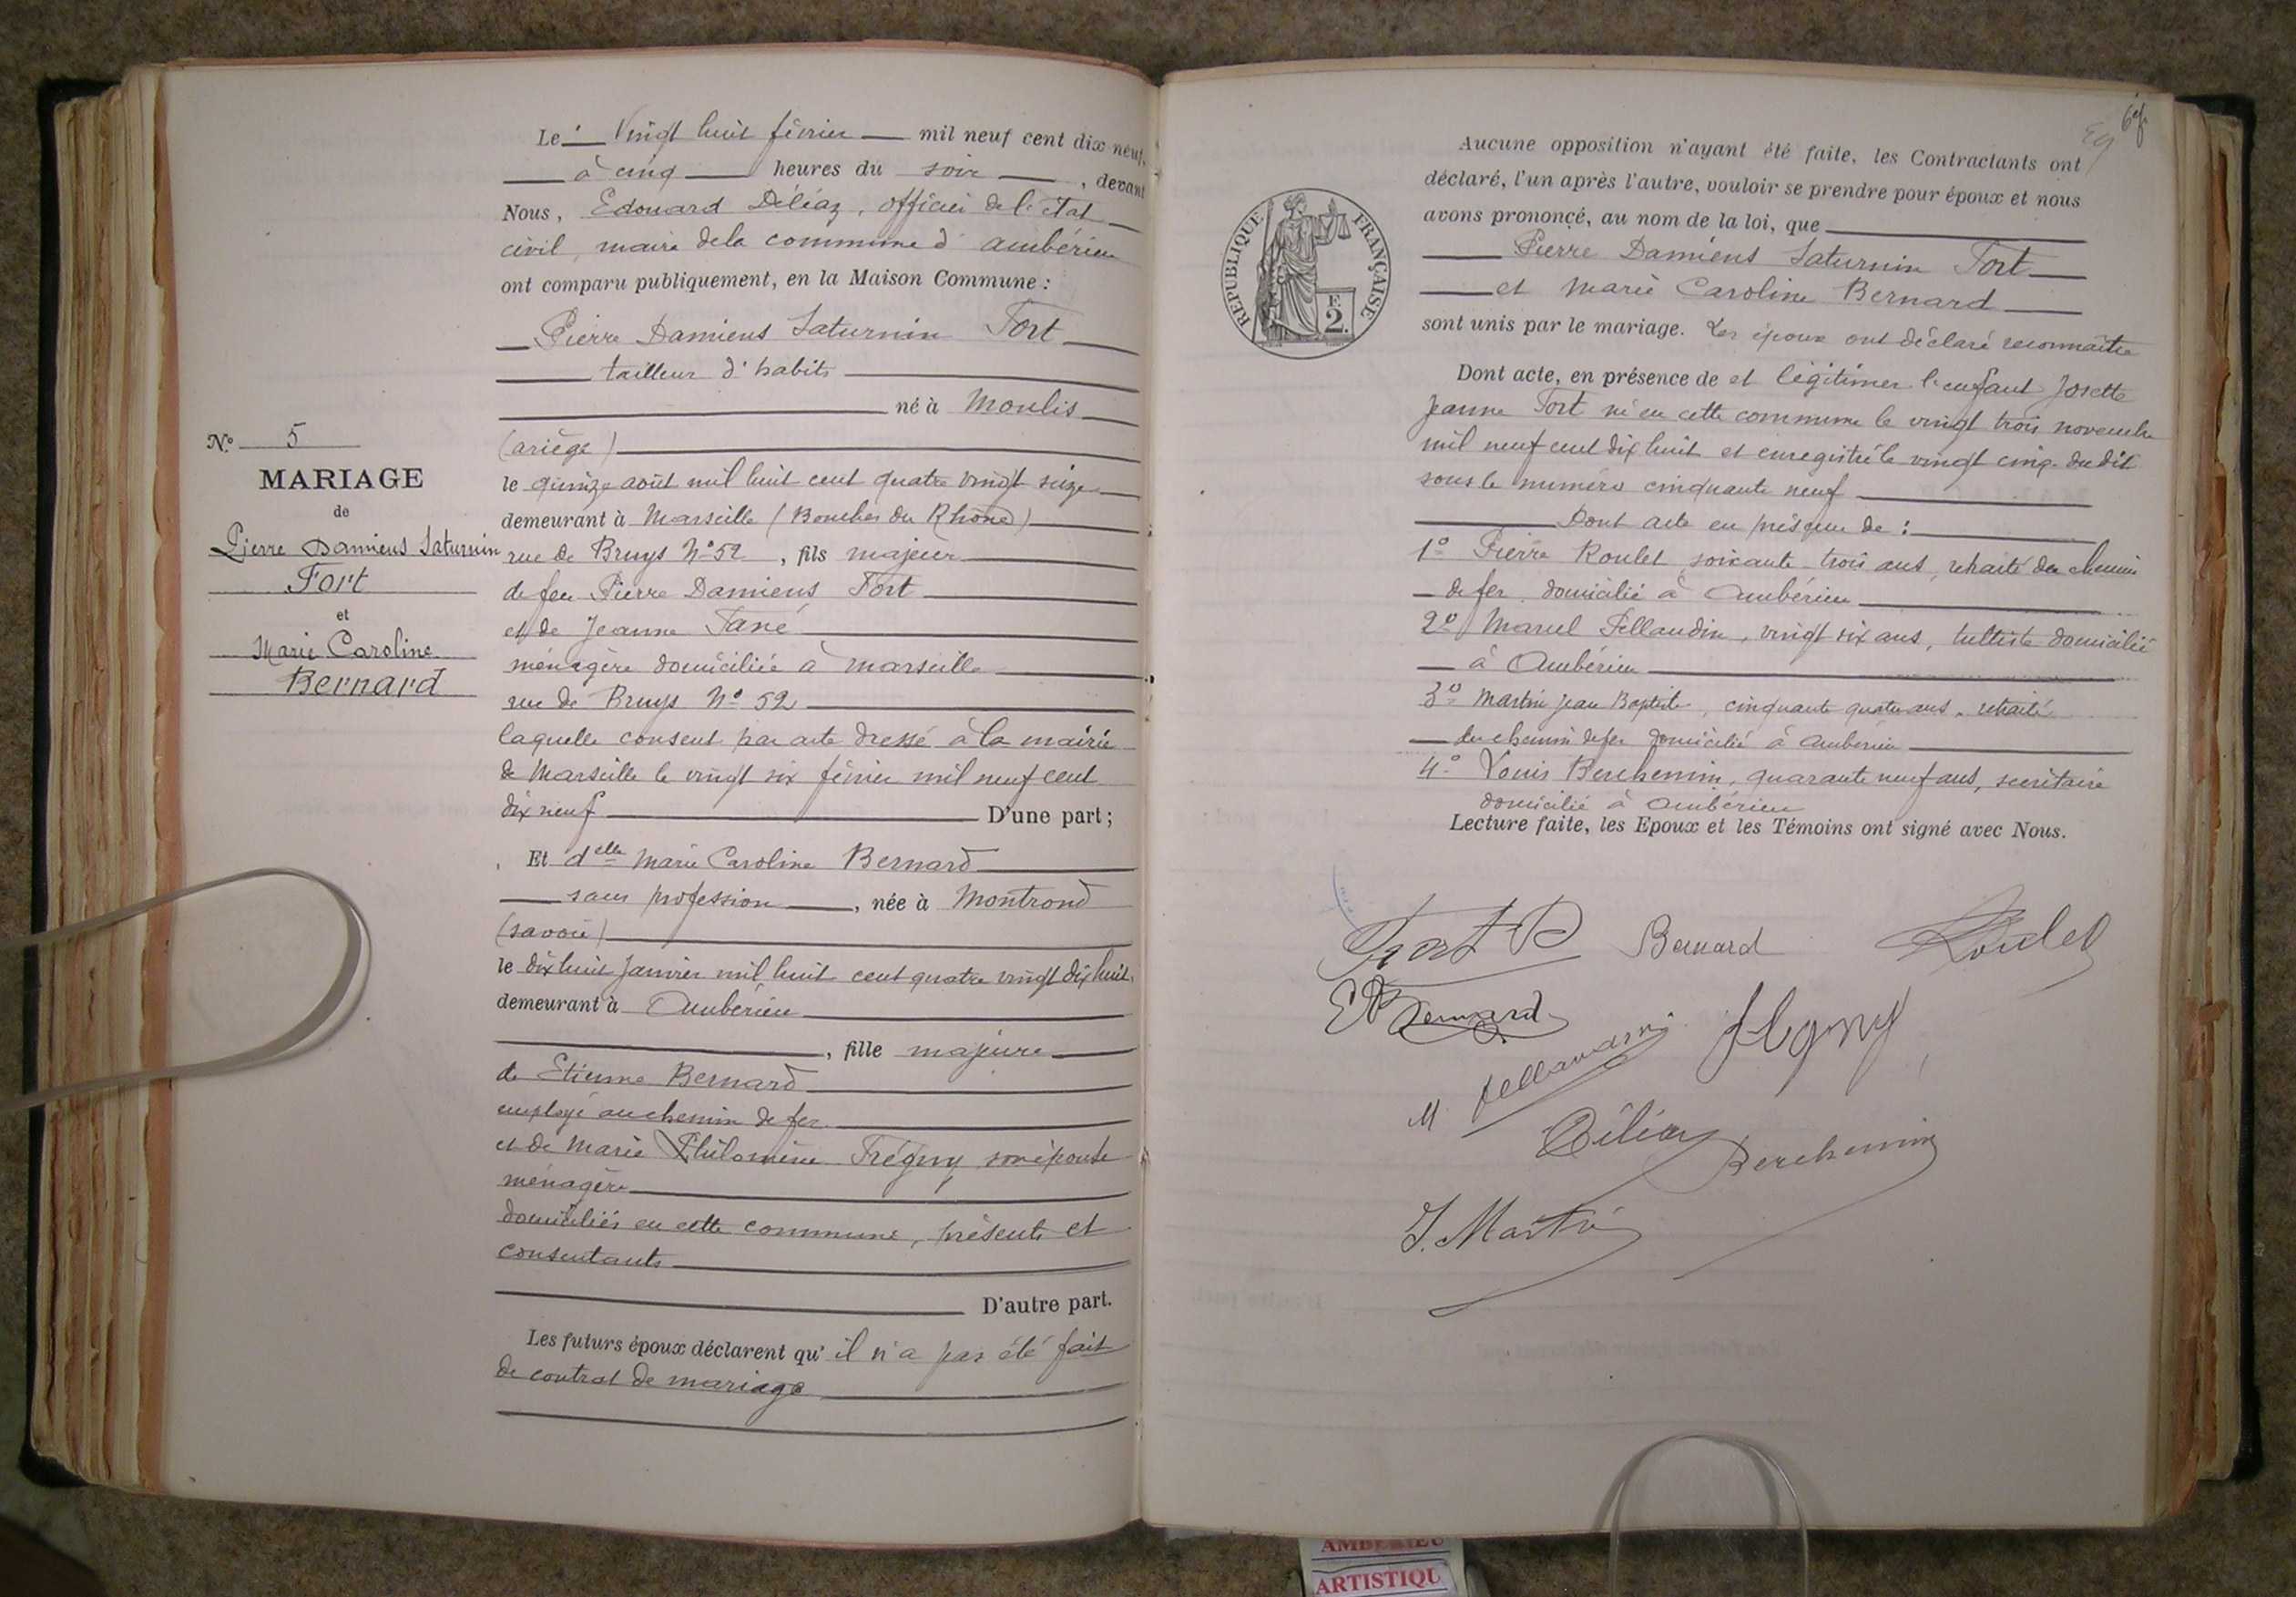 Le Vingt huit février mil neuf cent dix-neuf,
à cinq heures du soir, devant
Nous, Edouard Déléaz, officier de l'état
civil, maire de la commune d'ambérieu
ont comparu publiquement, en la Maison Commune :
Pierre Damiens Saturnin Fort
tailleur d'habits
né à Moulis
(ariège)
N° 5
MARIAGE
de
Pierre Damiens Saturnin
Fort
et
Marie Caroline
Bernard
le quinze août mil huit cent quatre vingt seize
demeurant à Marseille (Bouches du Rhône)
rue de Bruys N° 52, fils majeur
de feu Pierre Damiens Fort
et de Jeanne Tané
ménagère domiciliée à Marseille
rue de Bruys N° 52
laquelle consent par acte dressé à la mairie
de Marseille le vingt six février mil neuf cent
dix neuf D'une part;
Et delle Marie Caroline Bernard
sans profession, née à Montrond
(savoie)
le dix huit Janvier mil huit cent quatre vingt dix huit
demeurant à Ambérieu
, fille majeure
de Etienne Bernard
employé au chemin de fer
et de Marie Philomène Frégny son épouse
ménagère
domiciliés en cette commune, présents et
consentants
D'autre part.
Les futurs époux déclarent qu'il n'a pas été fait
de contrat de mariage
Aucune opposition n'ayant été faite, les Contractants ont
déclaré, l'un après l'autre, vouloir se prendre pour époux et nous
avons prononcé, au nom de la loi, que
Pierre Damiens Saturnin Fort
et Marie Caroline Bernard
sont unis par le mariage. Les époux ont déclaré reconnaître
Dont acte, en présence de et légitimer l'enfant Josette
Jeanne Fort né en cette commune le vingt trois novembre
mil neuf cent dix huit et enregistré le vingt cinq du dit
sous le numéro cinquante neuf
Dont acte en présence de :
1° Pierre Roulet, soixante trois ans, retraité du chemin
de fer domicilié à Ambérieu
2° Marcel Pellaudin, vingt six ans, tulliste domicilié
à Ambérieu
3° Martin Jean Baptiste, cinquante quatre ans, retraité
du chemin de fer domicilié à Ambérieu
4° Louis Berchemin, quarante neuf ans, secrétaire
domicilié à Ambérieu
Lecture faite, les Epoux et les Témoins ont signé avec Nous.
REPUBLIQUE FRANÇAISE
F.
2.
Fort P Bernard Roulet
E Bernard
M Pellaudin
Déléaz
Berchemin
J. Martin
AMBERIEU
ARTISTIQU